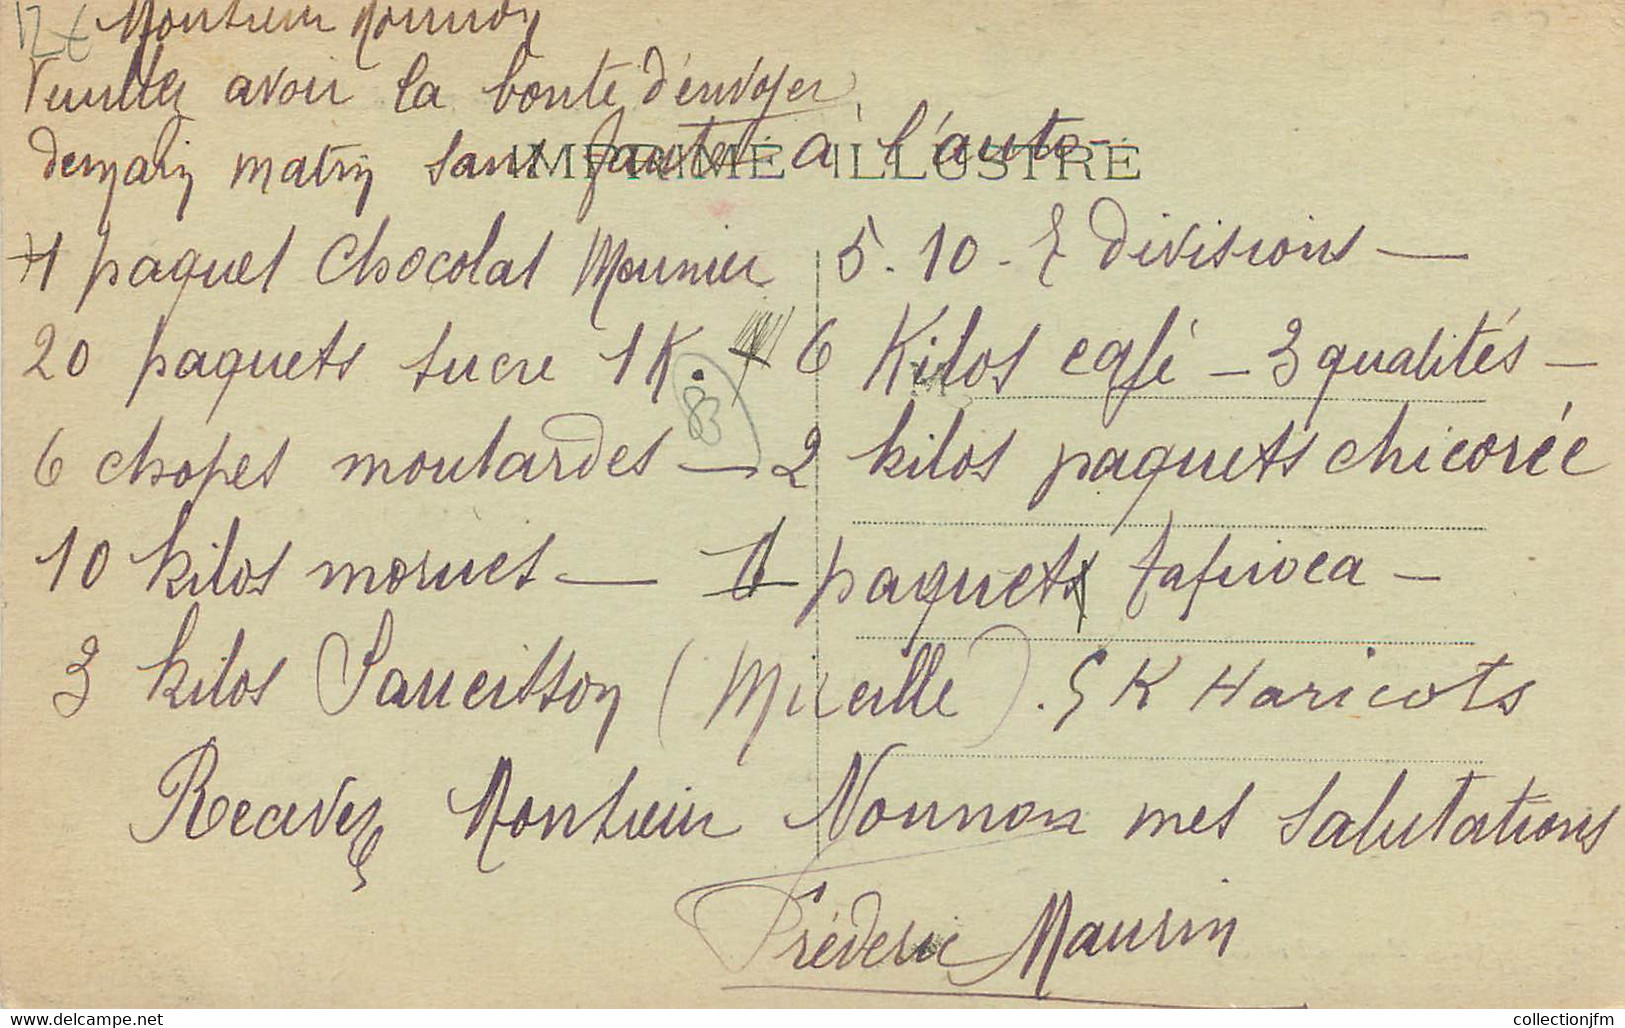 Monsieur Nounon
Veuillez avoir la bonté d'envoyer
demain matin sans faute à l'auto-
IMPRIMÉ ILLUSTRÉ
1 paquet Chocolat Meunier 5. 10 - 7 divisions —
20 paquets sucre 1K. 6 Kilos café — 3 qualités —
83
6 chopes moutardes — 2 kilos paquets chicorée
10 kilos morues — 1 paquet tapioca —
3 kilos Saucisson (Mireille). 5 K Haricots
Recevez Monsieur Nounon mes salutations
Fréderic Maurin
collectionjfm
www.delcampe.net